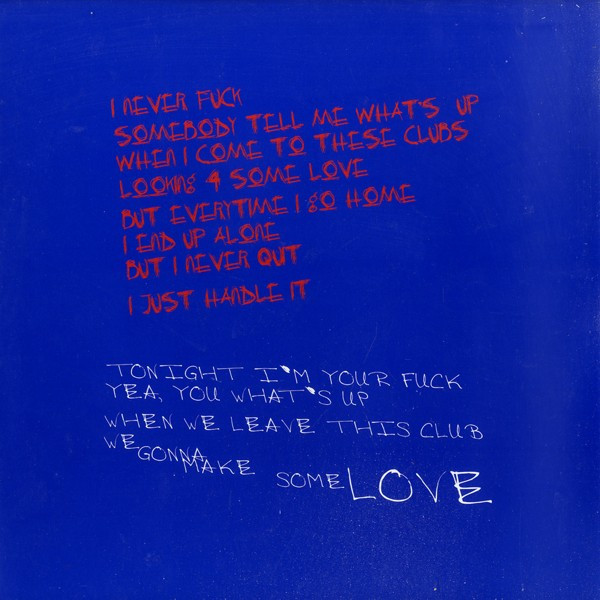 I NEVER FUCK
SOMEBODY TELL ME WHAT'S UP
WHEN I COME TO THESE CLUBS
LOOKING 4 SOME LOVE
BUT EVERYTIME I GO HOME
I END UP ALONE
BUT I NEVER QUT
I JUST HANDLE IT
TONIGHT I'M YOUR FUCK
YEA, YOU WHAT'S UP
WHEN WE LEAVE THIS CLUB
WE GONNA MAKE SOME LOVE